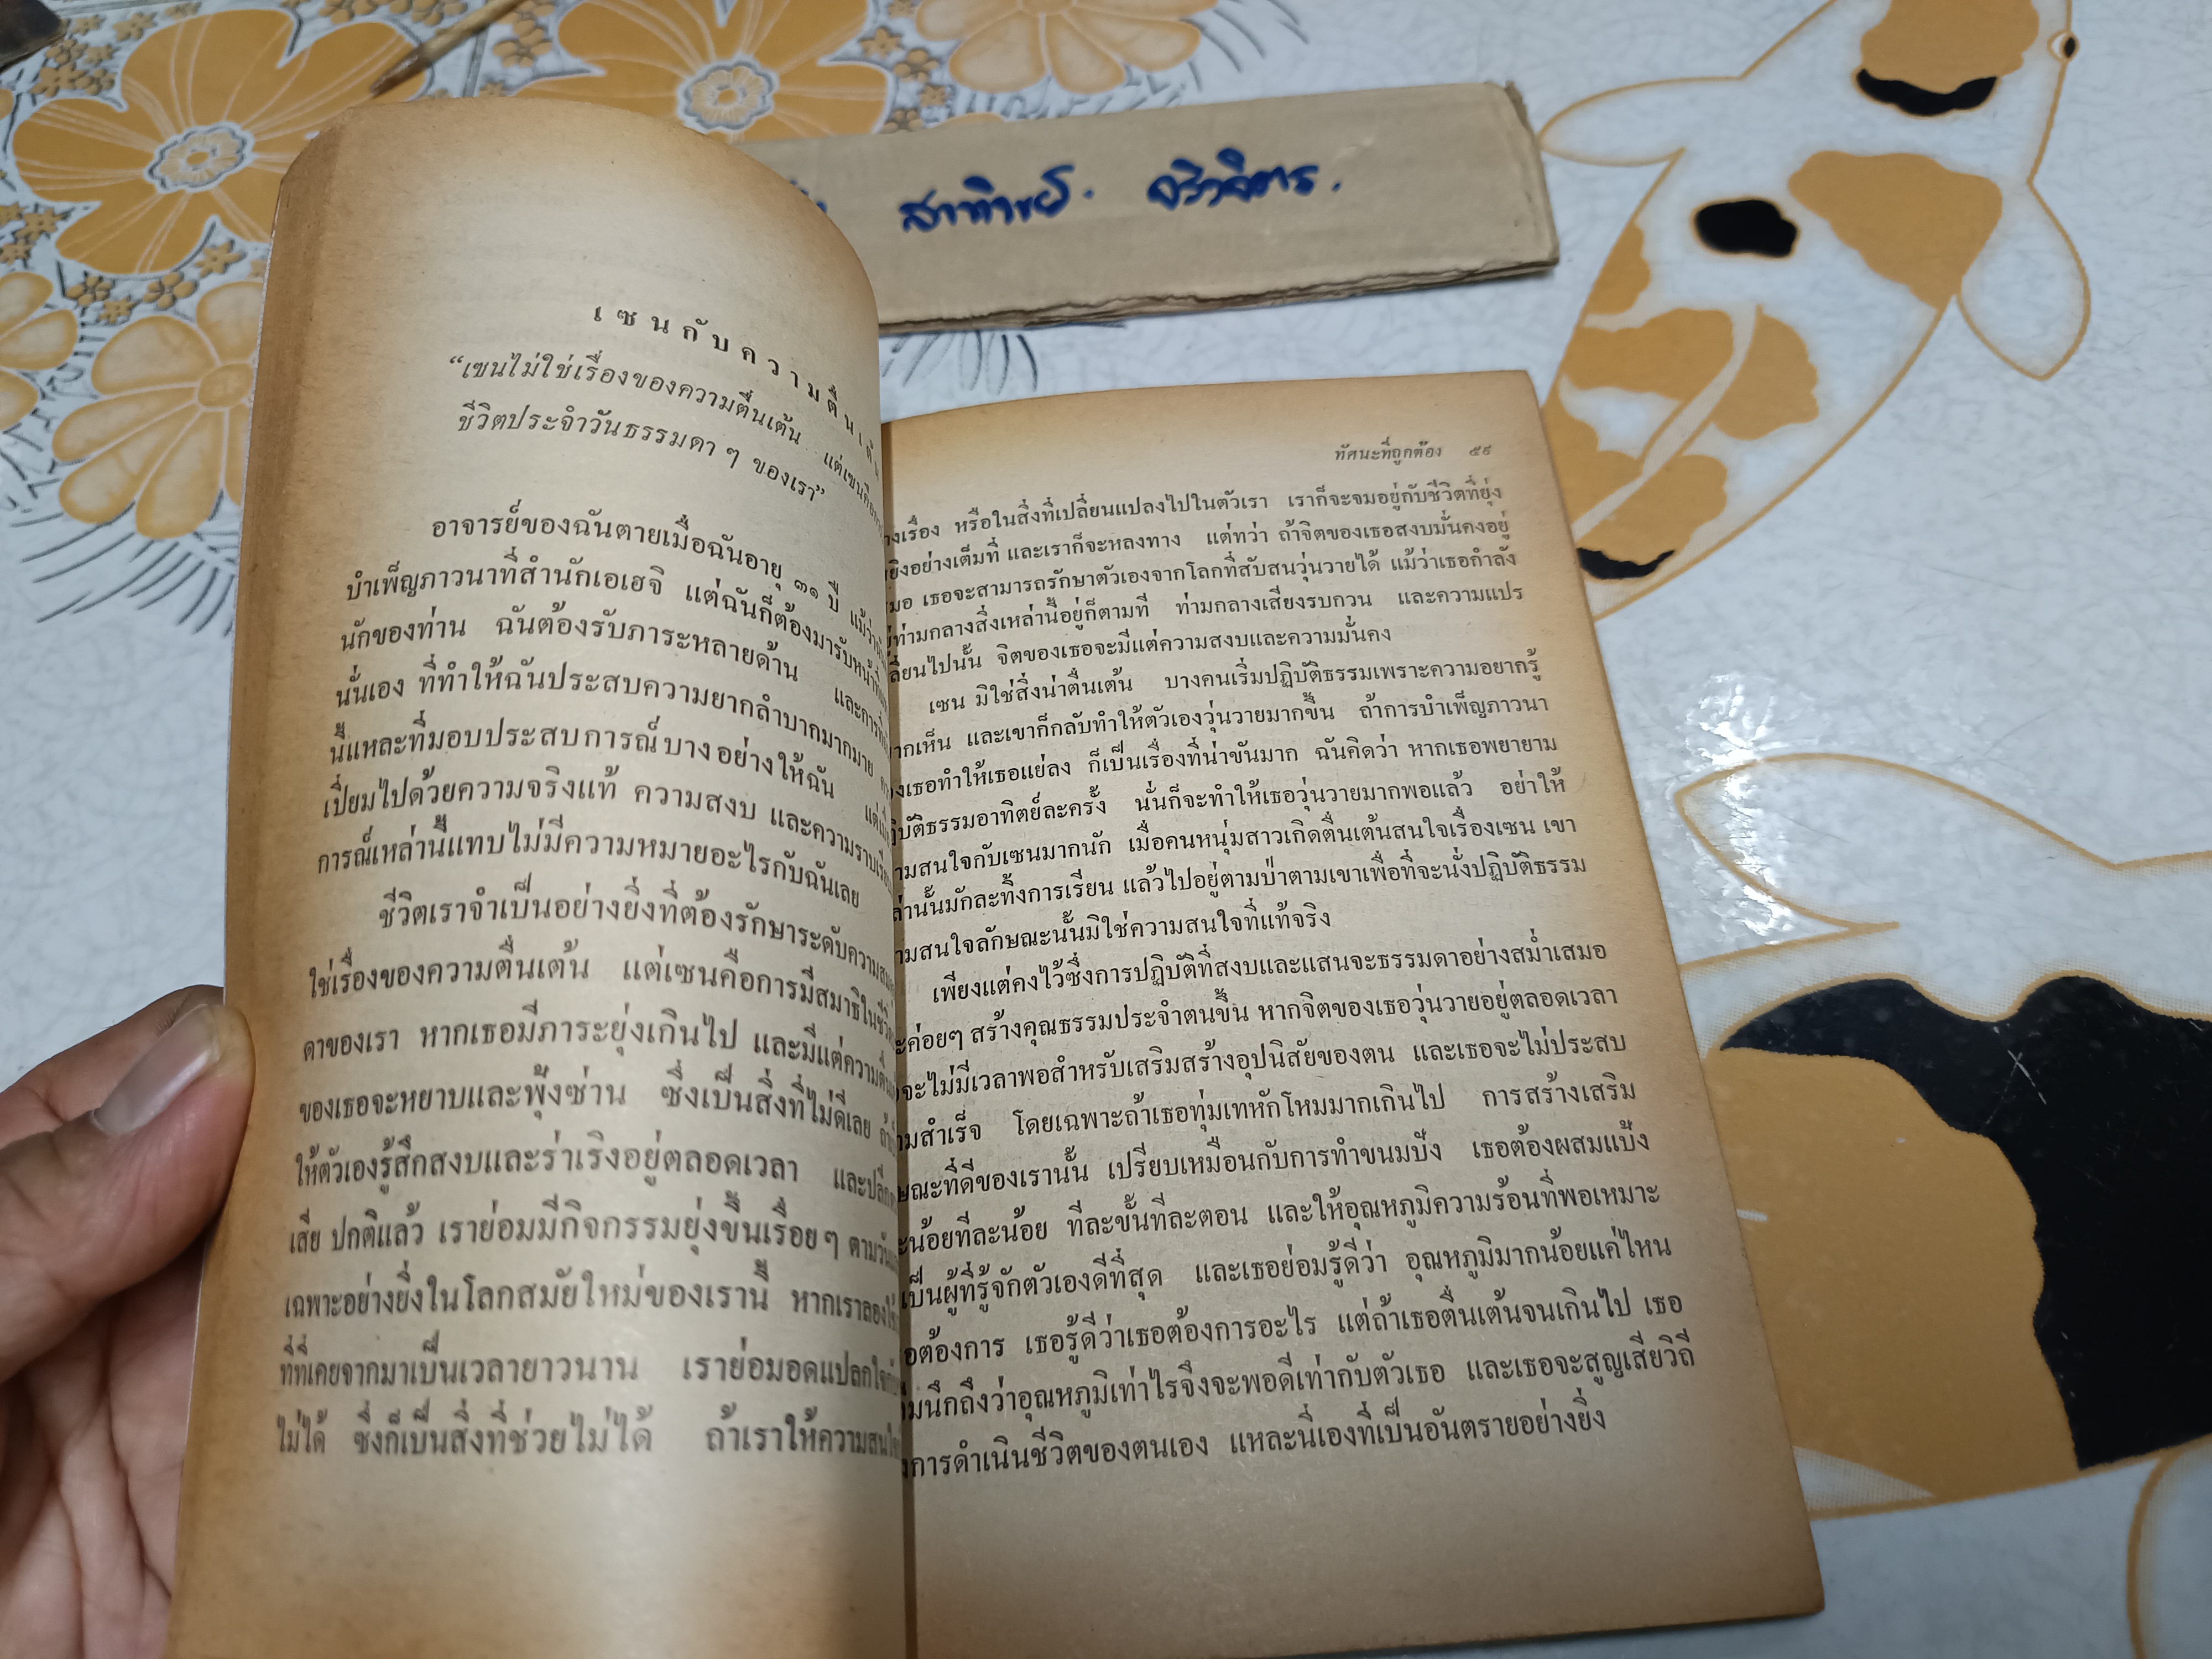 สาทิพย์.
เซนกับความตื่นเต้น
“เซนไม่ใช่เรื่องของความตื่นเต้น แต่เซนคือ
ชีวิตประจำวันธรรมดา ๆ ของเรา”
อาจารย์ของฉันตายเมื่อฉันอายุ ๓๑ ปี แม้ว่า
บำเพ็ญภาวนาที่สำนักเอเฮจิ แต่ฉันก็ต้องมารับหน้าที่
นักของท่าน ฉันต้องรับภาระหลายด้าน และการที่
นั่นเอง ที่ทำให้ฉันประสบความยากลำบากมากมาย
นี้แหละที่มอบประสบการณ์บางอย่างให้ฉัน แต่
เปี่ยมไปด้วยความจริงแท้ ความสงบ และความราบเรียบ
การณ์เหล่านี้แทบไม่มีความหมายอะไรกับฉันเลย
ชีวิตเราจำเป็นอย่างยิ่งที่ต้องรักษาระดับความ
ใช่เรื่องของความตื่นเต้น แต่เซนคือการมีสมาธิในชีวิต
ดาของเรา หากเธอมีภาระยุ่งเกินไป และมีแต่ความตื่น
ของเธอจะหยาบและฟุ้งซ่าน ซึ่งเป็นสิ่งที่ไม่ดีเลย ถ้า
ให้ตัวเองรู้สึกสงบและร่าเริงอยู่ตลอดเวลา และปลีก
เสีย ปกติแล้ว เราย่อมมีกิจกรรมยุ่งขึ้นเรื่อยๆ ตามวัน
เฉพาะอย่างยิ่งในโลกสมัยใหม่ของเรานี้ หากเราลอง
ที่ที่เคยจากมาเป็นเวลายาวนาน เราย่อมอดแปลกใจ
ไม่ได้ ซึ่งก็เป็นสิ่งที่ช่วยไม่ได้ ถ้าเราให้ความสนใจ
ทัศนะที่ถูกต้อง ๕๙
างเรื่อง หรือในสิ่งที่เปลี่ยนแปลงไปในตัวเรา เราก็จะจมอยู่กับชีวิตที่ยุ่ง
ยิงอย่างเต็มที่ และเราก็จะหลงทาง แต่ทว่า ถ้าจิตของเธอสงบมั่นคงอยู่
มอ เธอจะสามารถรักษาตัวเองจากโลกที่สับสนวุ่นวายได้ แม้ว่าเธอกำลัง
ู่ท่ามกลางสิ่งเหล่านี้อยู่ก็ตามที ท่ามกลางเสียงรบกวน และความแปร
ลี่ยนไปนั้น จิตของเธอจะมีแต่ความสงบและความมั่นคง
เซน มิใช่สิ่งน่าตื่นเต้น บางคนเริ่มปฏิบัติธรรมเพราะความอยากรู้
ากเห็น และเขาก็กลับทำให้ตัวเองวุ่นวายมากขึ้น ถ้าการบำเพ็ญภาวนา
องเธอทำให้เธอแย่ลง ก็เป็นเรื่องที่น่าขันมาก ฉันคิดว่า หากเธอพยายาม
ฏิบัติธรรมอาทิตย์ละครั้ง นั่นก็จะทำให้เธอวุ่นวายมากพอแล้ว อย่าให้
ามสนใจกับเซนมากนัก เมื่อคนหนุ่มสาวเกิดตื่นเต้นสนใจเรื่องเซน เขา
ล่านั้นมักละทิ้งการเรียน แล้วไปอยู่ตามป่าตามเขาเพื่อที่จะนั่งปฏิบัติธรรม
ามสนใจลักษณะนั้นมิใช่ความสนใจที่แท้จริง
เพียงแต่คงไว้ซึ่งการปฏิบัติที่สงบและแสนจะธรรมดาอย่างสม่ำเสมอ
ะค่อยๆ สร้างคุณธรรมประจำตนขึ้น หากจิตของเธอวุ่นวายอยู่ตลอดเวลา
อจะไม่มีเวลาพอสำหรับเสริมสร้างอุปนิสัยของตน และเธอจะไม่ประสบ
ามสำเร็จ โดยเฉพาะถ้าเธอทุ่มเทหักโหมมากเกินไป การสร้างเสริม
ษณะที่ดีของเรานั้น เปรียบเหมือนกับการทำขนมปัง เธอต้องผสมแป้ง
ะน้อยทีละน้อย ทีละขั้นทีละตอน และให้อุณหภูมิความร้อนที่พอเหมาะ
เป็นผู้ที่รู้จักตัวเองดีที่สุด และเธอย่อมรู้ดีว่า อุณหภูมิมากน้อยแค่ไหน
อต้องการ เธอรู้ดีว่าเธอต้องการอะไร แต่ถ้าเธอตื่นเต้นจนเกินไป เธอ
มนึกถึงว่าอุณหภูมิเท่าไรจึงจะพอดีเท่ากับตัวเธอ และเธอจะสูญเสียวิถี
งการดำเนินชีวิตของตนเอง แหละนี่เองที่เป็นอันตรายอย่างยิ่ง